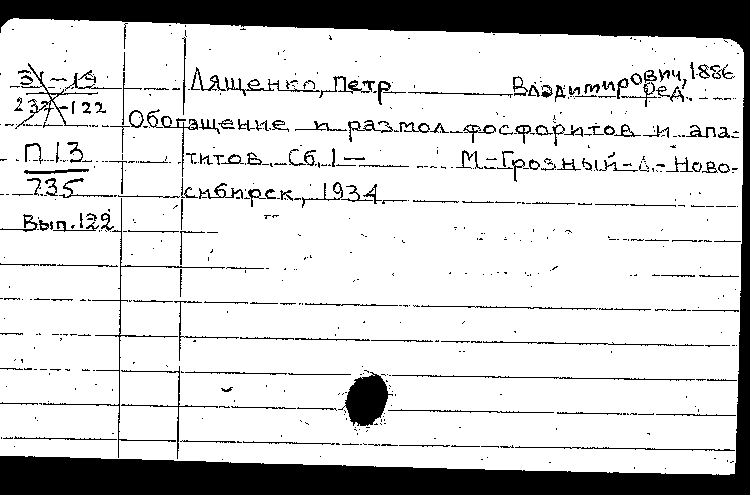 31-19
237-122
П13
735
Вып.122
Лященко, Петр Владимирович, 1886
Ред.
Обогащение и размол фосфоритов и апа-
титов. Сб. 1— М.-Грозный-Л.-Ново-
сибирск, 1934.